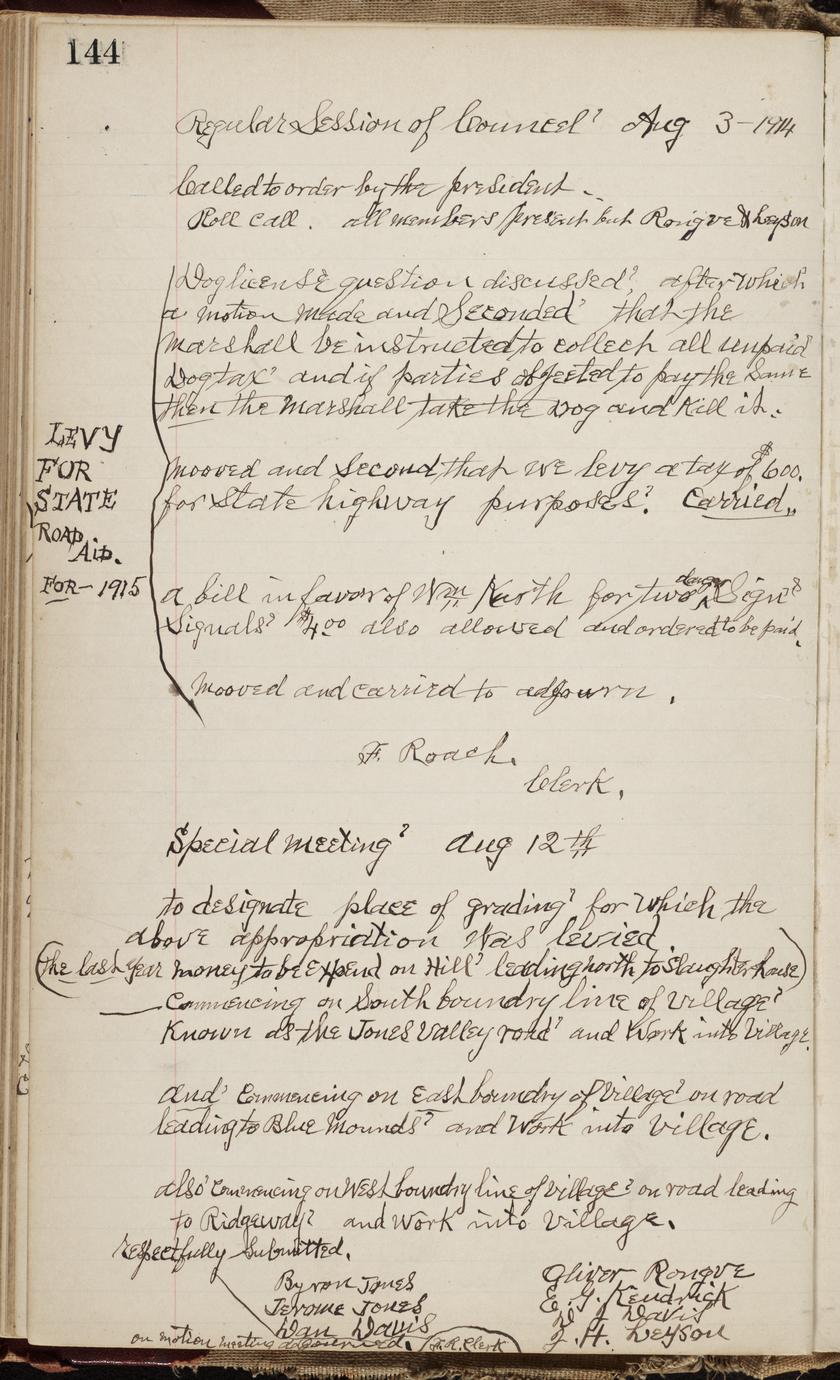 144
Regular Session of Councel Aug 3-1914
Called to order by the president.
Roll Call. all members present but Rongve & heyson
Doglicense question discussed, after which
a motion made and Seconded that the
Marshall be instructed to collech all unpaid
Dogtax and if parties objected to pay the Same
then the Marshall take the Dog and Kill it.
LEVY
FOR
STATE
ROAD
AiD.
FOR- 1915
Mooved and Second, that we levy a tax of $600.
for State highway purposes. Carried.
a bill in favor of Wm North for two danger Sign
Signals $4.00 also allowed and ordered to be paid.
Mooved and carried to adjourn.
F. Roach.
Clerk.
Special meeting Aug 12th
to designate place of grading for which the
above appropriation was levied
(the last year money to be Expend on Hill leading north to Slaughterhouse)
Commencing on South boundry line of Village
Known as the Jones Valley road and Work into Village.
and Commencing on East boundry of Village on road
leading to Blue Mounds and Work into Village.
also Commencing on West boundry line of Village on road leading
to Ridgeway and Work into Village.
respectfully Submitted.
Byron Jones
Jerome Jones
Dan Davis
Oliver Rongve
E. G. Kendrick
Davis
H. Leyson
on motion meeting adjourned. F. R. Clerk